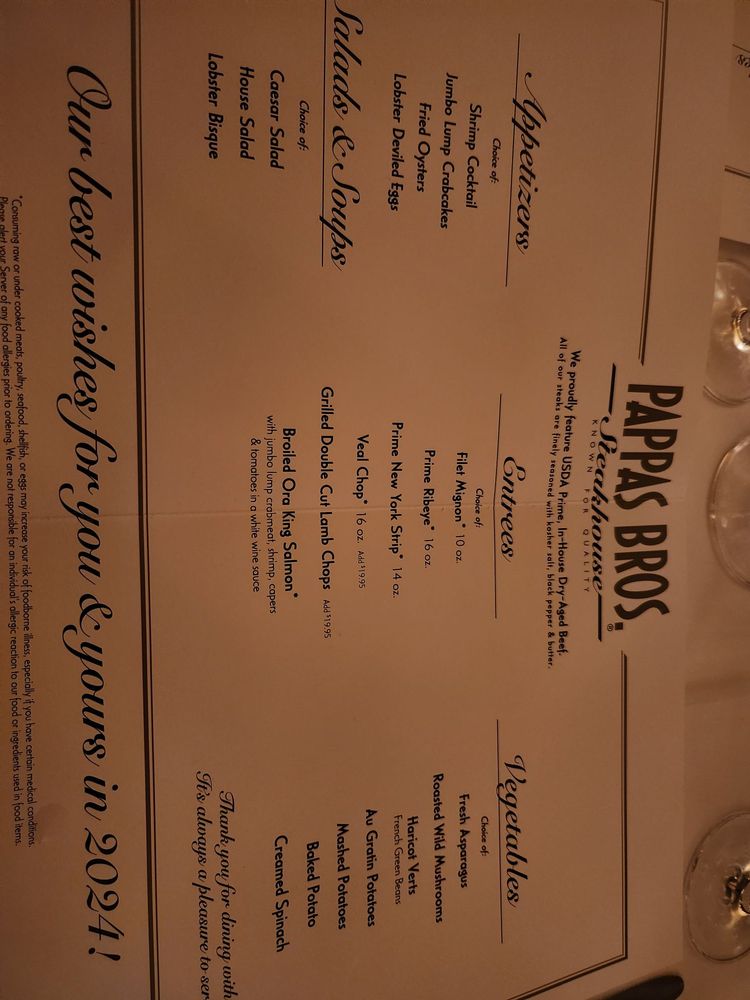 PAPPAS BROS.®
Steakhouse
KNOWN FOR QUALITY
We proudly feature USDA Prime, In-House Dry-Aged Beef.
All of our steaks are finely seasoned with kosher salt, black pepper & butter.
Appetizers
Choice of:
Shrimp Cocktail
Jumbo Lump Crabcakes
Fried Oysters
Lobster Deviled Eggs
Salads & Soups
Choice of:
Caesar Salad
House Salad
Lobster Bisque
Entrees
Choice of:
Filet Mignon* 10 oz.
Prime Ribeye* 16 oz.
Prime New York Strip* 14 oz.
Veal Chop* 16 oz. Add $19.95
Grilled Double Cut Lamb Chops Add $19.95
Broiled Ora King Salmon*
with jumbo lump crabmeat, shrimp, capers
& tomatoes in a white wine sauce
Vegetables
Choice of:
Fresh Asparagus
Roasted Wild Mushrooms
Haricot Verts
French Green Beans
Au Gratin Potatoes
Mashed Potatoes
Baked Potato
Creamed Spinach
Thank you for dining with
It's always a pleasure to ser
Our best wishes for you & yours in 2024!
*Consuming raw or under cooked meats, poultry, seafood, shellfish, or eggs may increase your risk of foodborne illness, especially if you have certain medical conditions.
Please alert your Server of any food allergies prior to ordering. We are not responsible for an individual's allergic reaction to our food or ingredients used in food items.